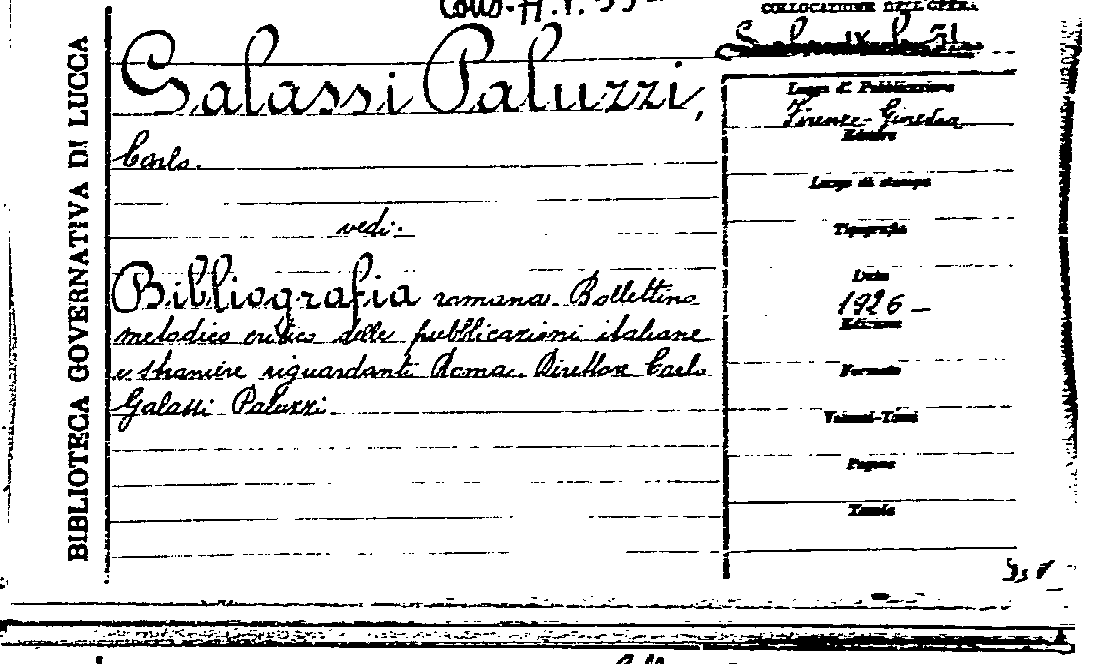 COLLOCAZIONE DELL'OPERA
BIBLIOTECA GOVERNATIVA DI LUCCA
Galassi Paluzzi,
Carlo.
vedi:
Bibliografia romana. Bollettino
metodico critico delle pubblicazioni italiane
e straniere riguardanti Roma. Direttore Carlo
Galassi Paluzzi.
Luogo di Pubblicazione
Firenze-Ginevra
Editore
Luogo di stampa
Tipografia
Data
1926 –
Edizione
Formato
Volumi-Tomi
Pagine
Tavole